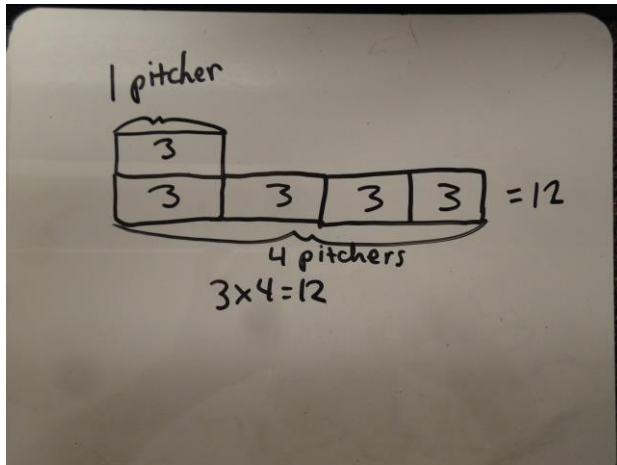 1 pitcher
3
3 3 3 3 = 12
4 pitchers
3 × 4 = 12